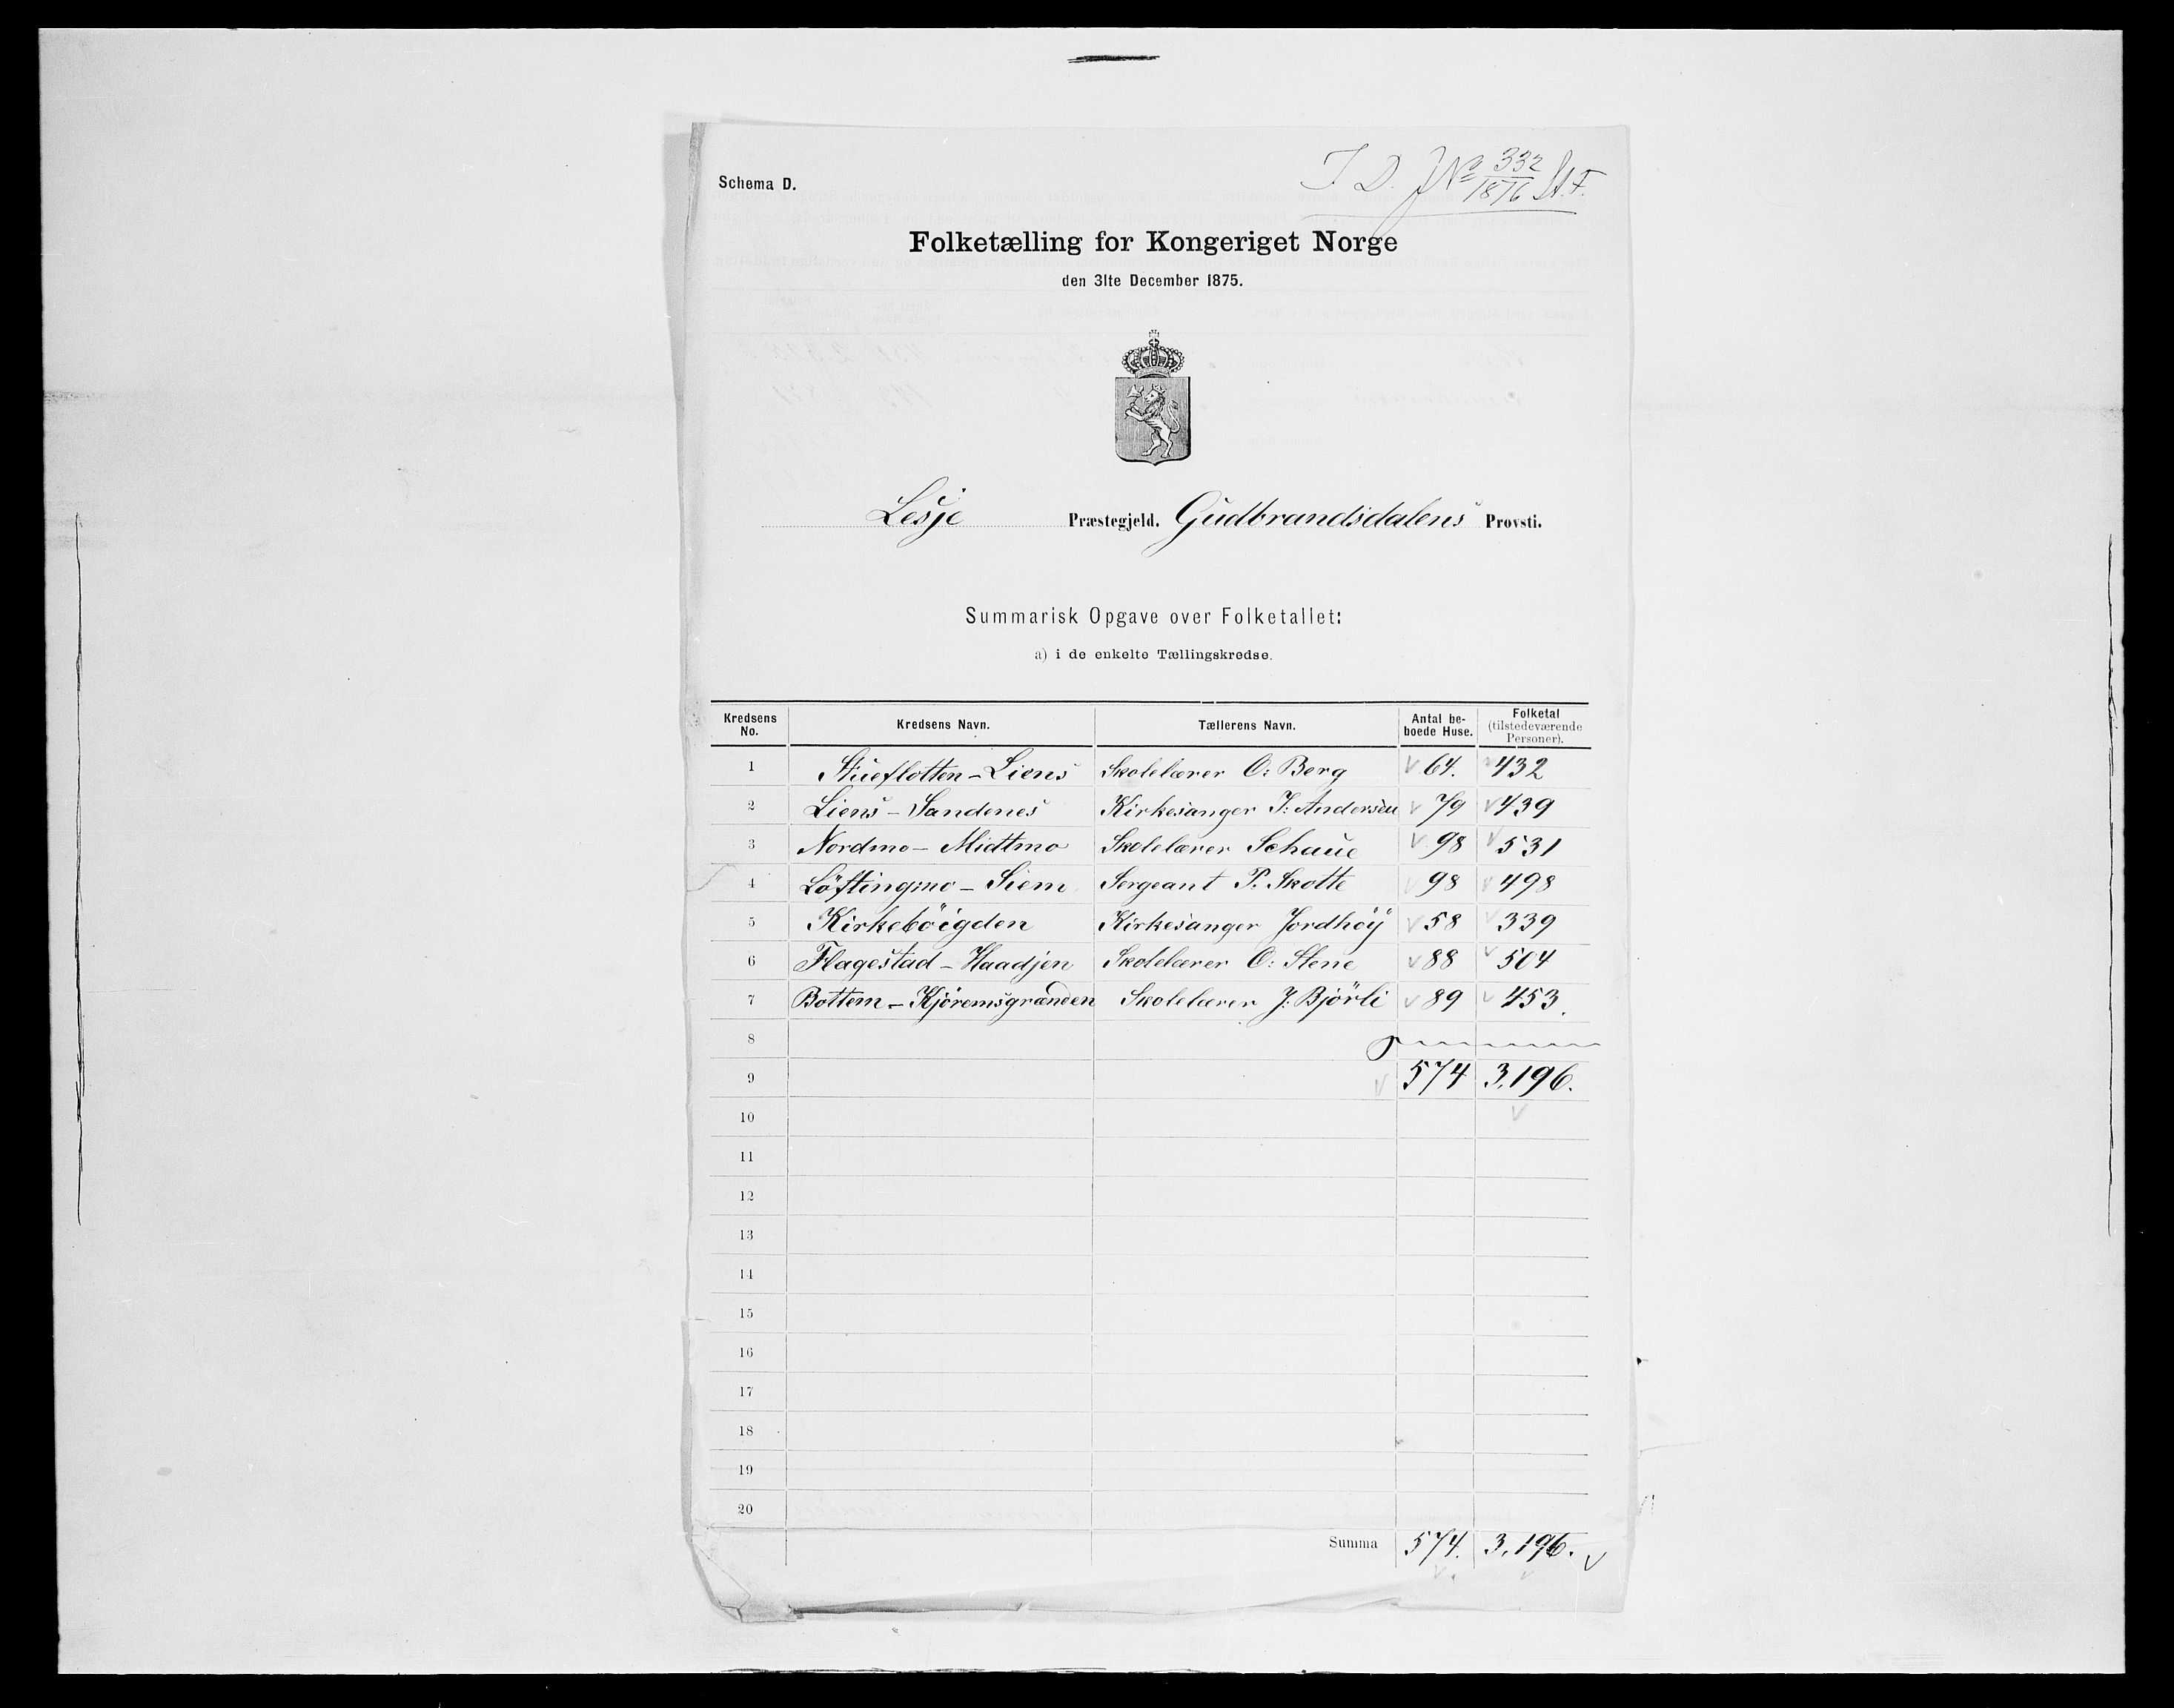 Schema D.
I. D. J № 332/1876 St. F.
Folketælling for Kongeriget Norge
den 31te December 1875.
Lesje Præstegjeld. Gudbrandsdalens Provsti.
Summarisk Opgave over Folketallet:
a) i de enkelte Tællingskredse.
Kredsens No. Kredsens Navn. Tællerens Navn. Antal beboede Huse. Folketal (tilstedeværende Personer).
1 Stueflotten - Liens Skolelærer O: Berg 64. 432
2 Liens - Sandenes Kirkesanger I: Andersen 79 439
3 Nordmo - Midtmo Skolelærer Schaue 98 531
4 Löftingmo - Siem Sergeant P. Skotte 98 498
5 Kirkeböigden Kirkesanger Jordhöÿ 58 339
6 Flagestad - Haadjen Skolelærer O: Stene 88 504
7 Bottem - Kjöremsgrænden Skolelærer J. Bjõrli 89 453.
8
9 574 3,196.
10
11
12
13
14
15
16
17
18
19
20
Summa 574. 3,196.